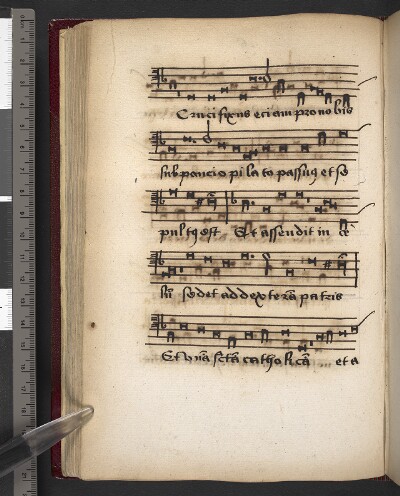 Crucifixus eciam pro nobis
sub poncio pilato passus et se
pultus est Et assendit in ce
lū sedet ad dexterā patris
Et vnā sctā catholicā et a